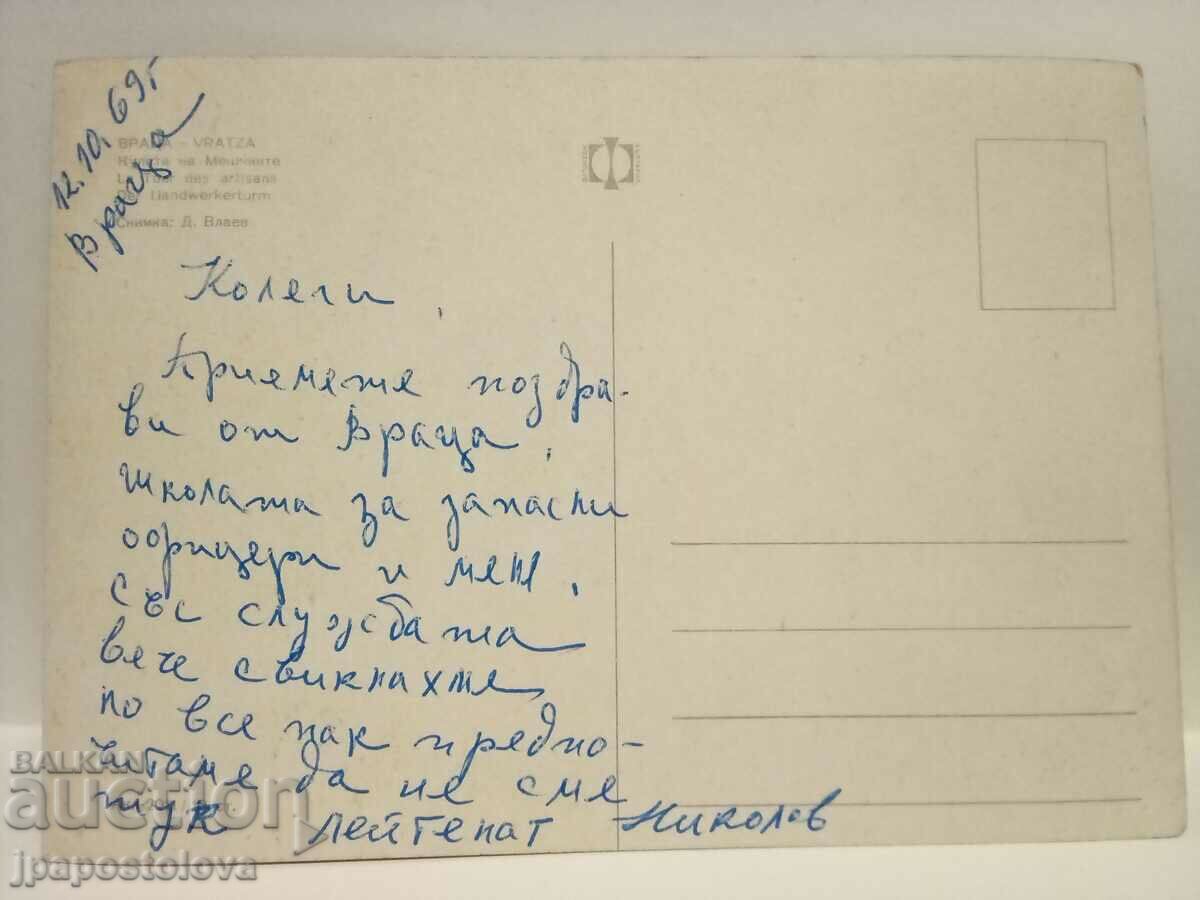 12.10.69 г.
Враца
ВРАЦА – VRATZA
Кулата на Мешчиите
La Tour des artisans
Der Handwerkerturm
Снимка: Д. Влаев
Колеги,
Приемете поздра-
ви от Враца,
школата за запасни
офицери и мен.
Със службата
вече свикнахме,
но все пак предпо-
читаме да не сме
тук Лейтенат Николов
BALKAN
auction
jpapostolova